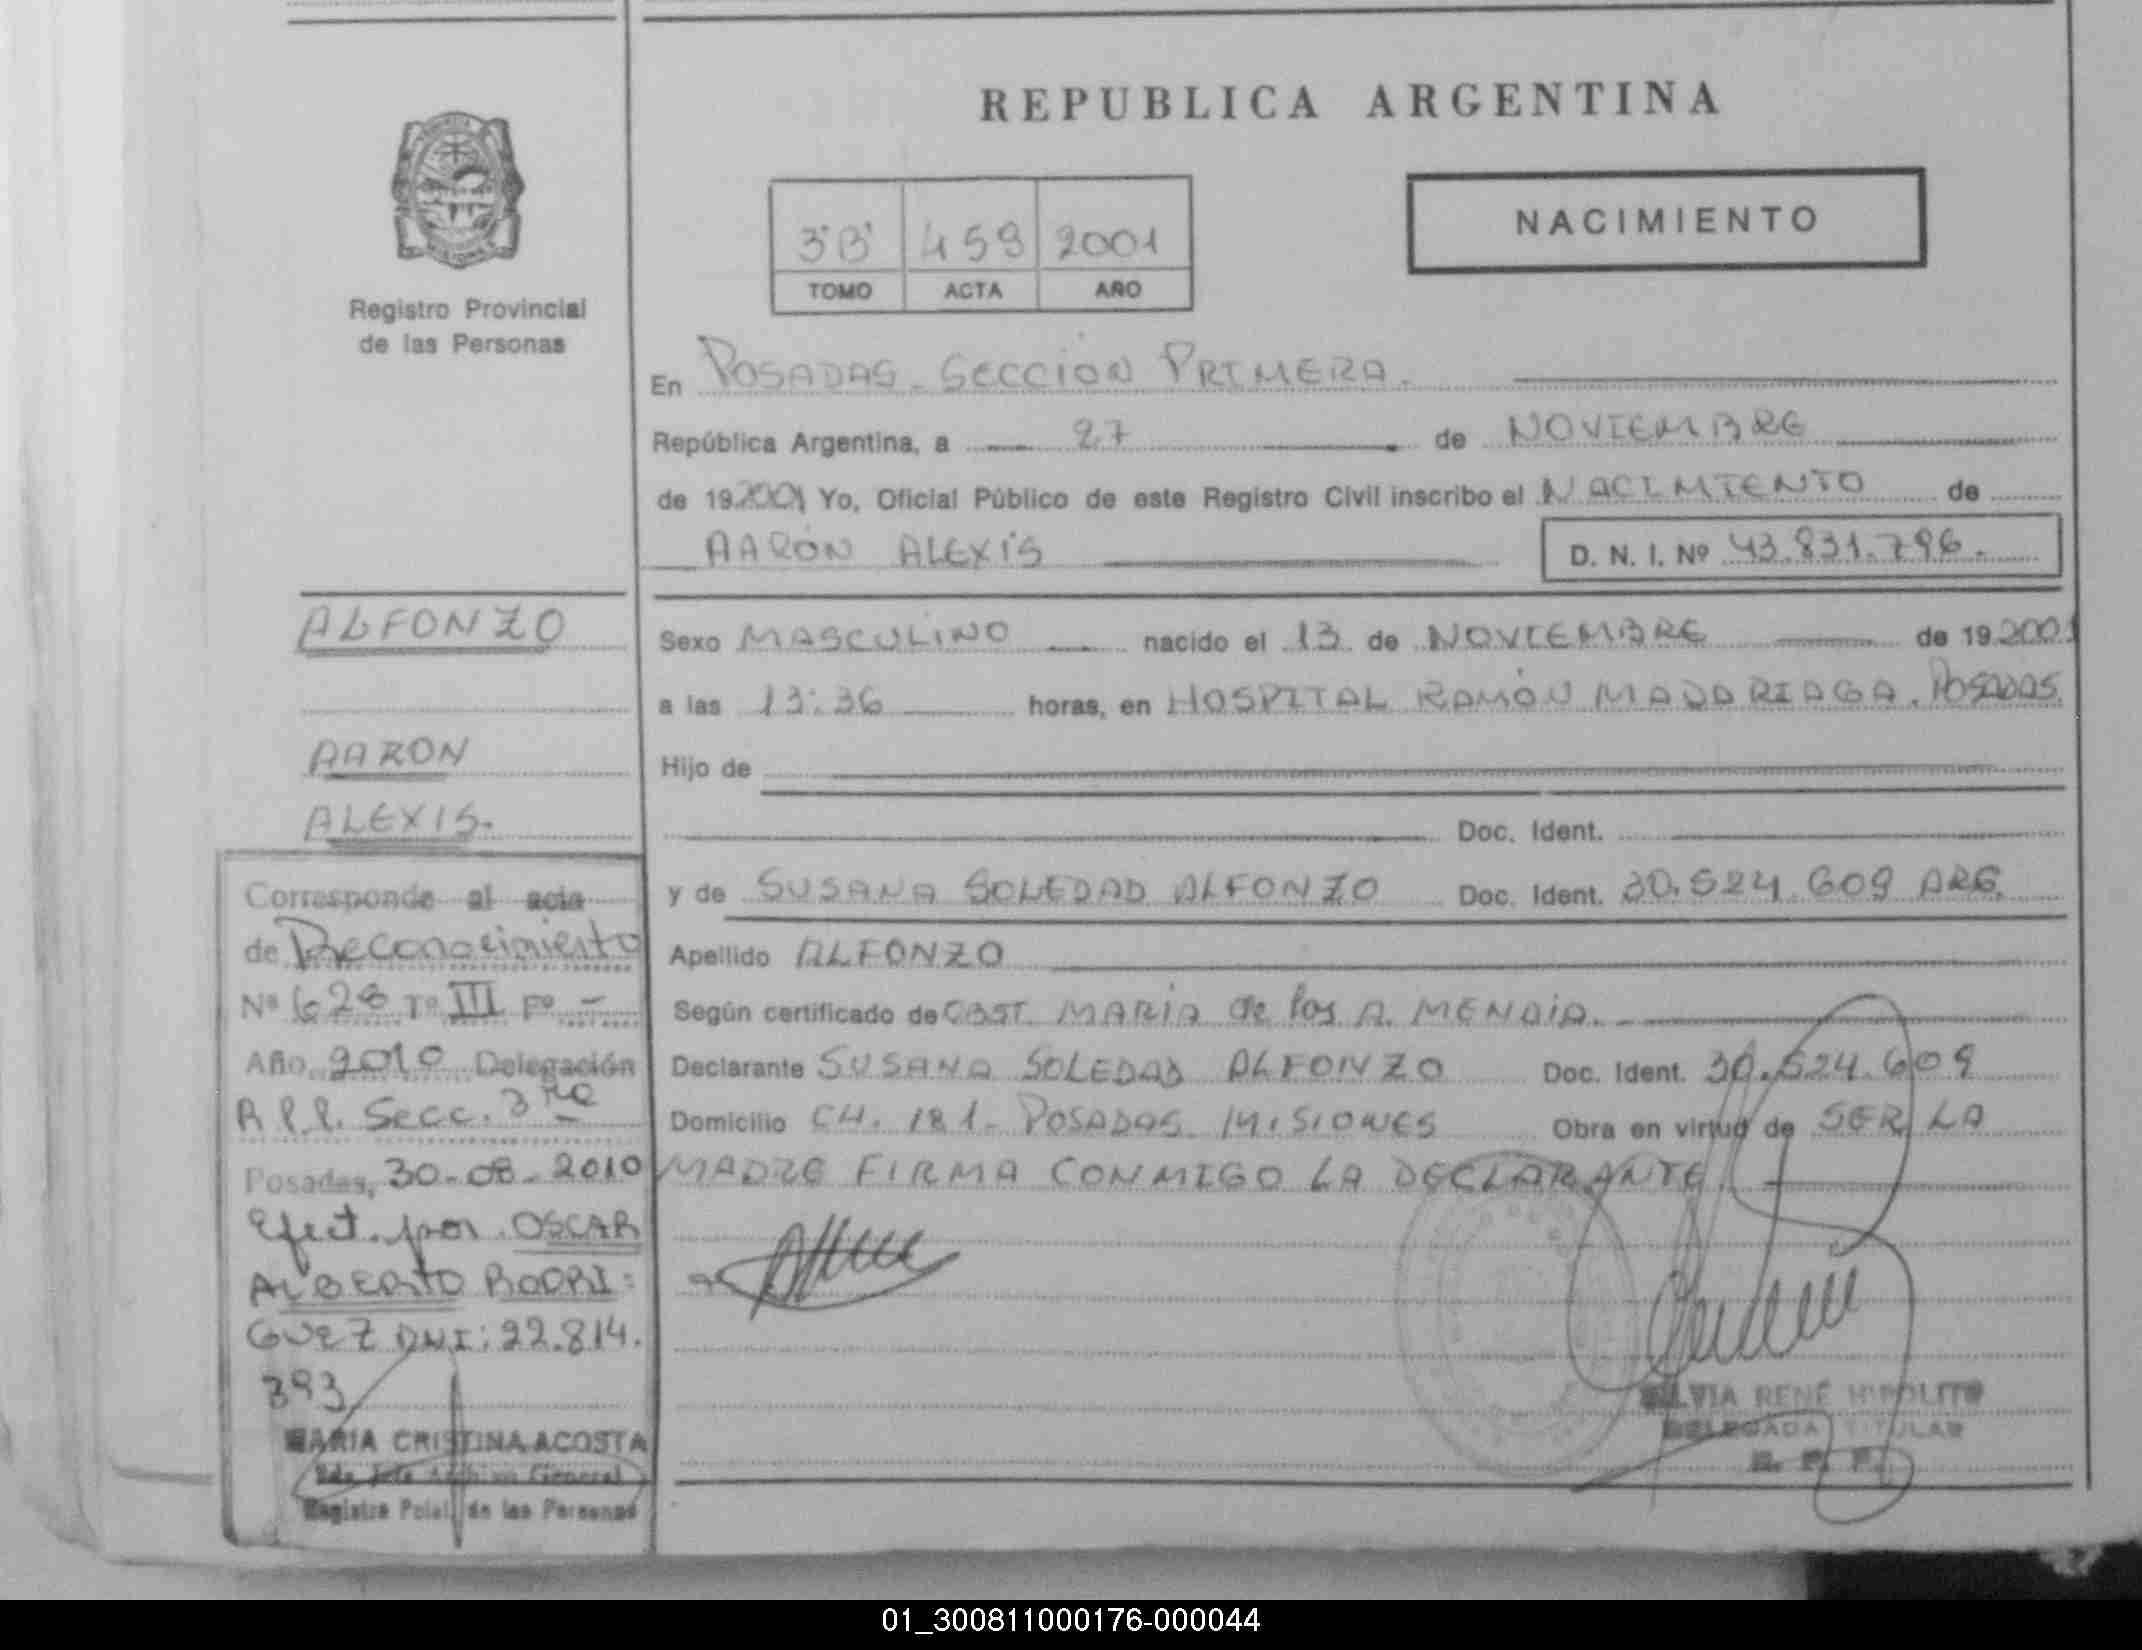 REPUBLICA ARGENTINA
NACIMIENTO
3º'B' 459 2001
TOMO ACTA AÑO
Registro Provincial
de las Personas
En POSADAS. SECCION PRIMERA.
República Argentina, a 27 de NOVIEMBRE
de 19 2001 Yo, Oficial Público de este Registro Civil inscribo el NACIMIENTO de
AARÓN ALEXIS D. N. I. Nº 43.831.796.
Sexo MASCULINO nacido el 13 de NOVIEMBRE de 19 2001
a las 13:36 horas, en HOSPITAL RAMÓN MADARIAGA. POSADAS.
Hijo de
Doc. Ident.
y de SUSANA SOLEDAD ALFONZO Doc. Ident. 30.524.609 ARG.
Apellido ALFONZO
Según certificado de OBST. MARIA de los A. MENDIA.
Declarante SUSANA SOLEDAD ALFONZO Doc. Ident. 30.524.609
Domicilio CH. 181. POSADAS. MISIONES Obra en virtud de SER LA
MADRE FIRMA CONMIGO LA DECLARANTE
SILVIA RENÉ HIPOLITO
DELEGADA TITULAR
R. P. P.
ALFONZO
AARON
ALEXIS.
Corresponde al acta
de Reconocimiento
Nº 628 Tº III Fº -
Año 2010 Delegación
R.P.P. Secc. 3ra
Posadas, 30-08-2010
Efect. por OSCAR
ALBERTO RODRI=
GUEZ DNI: 22.814.
393
MARIA CRISTINA ACOSTA
2da Jefe Archivo General
Registro Pcial. de las Personas
01_300811000176-000044